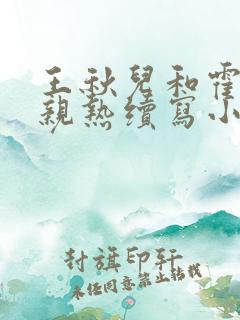 王秋兒和霍
親熱續寫小
封旗印轩
未经同意禁止转载